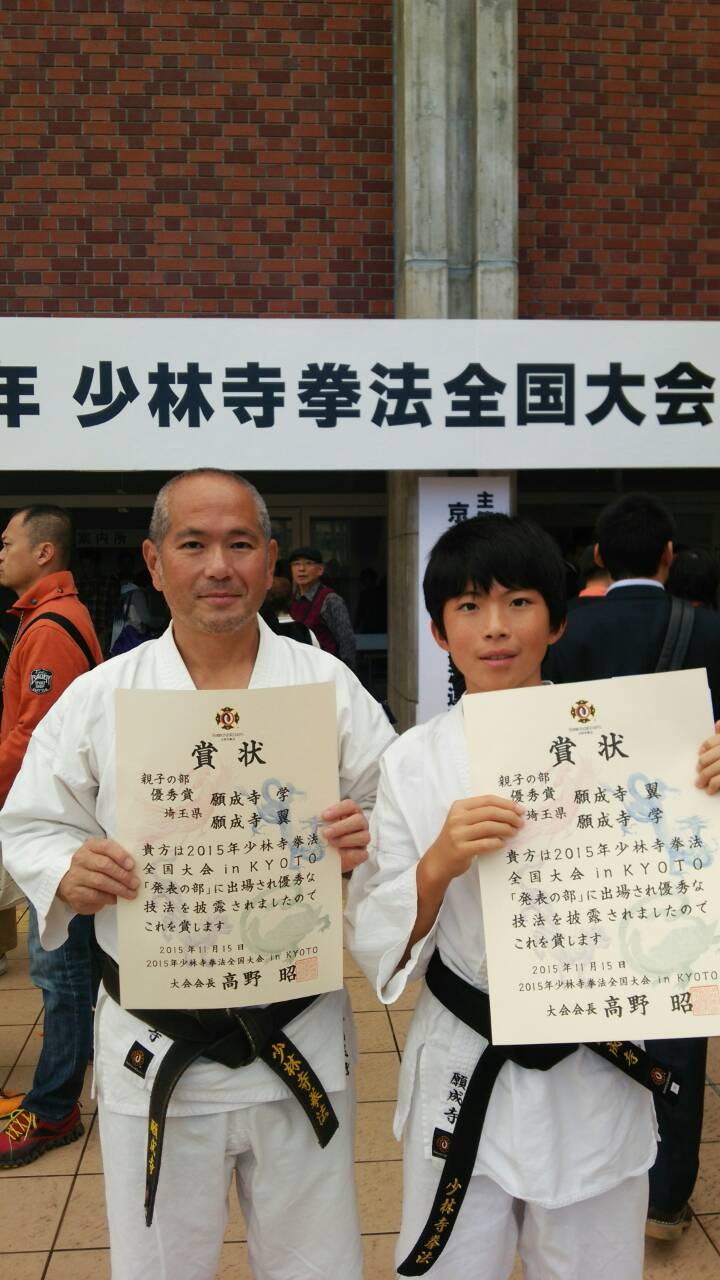 年 少林寺拳法全国大会
案内所
主
京
賞状
親子の部
優秀賞 願成寺 学
埼玉県 願成寺 翼
貴方は2015年少林寺拳法
全国大会 in KYOTO
「発表の部」に出場され優秀な
技法を披露されましたので
これを賞します
2015年11月15日
2015年少林寺拳法全国大会 in KYOTO
大会会長 高野 昭
賞状
親子の部
優秀賞 願成寺 翼
埼玉県 願成寺 学
貴方は2015年少林寺拳法
全国大会 in KYOTO
「発表の部」に出場され優秀な
技法を披露されましたので
これを賞します
2015年11月15日
2015年少林寺拳法全国大会 in KYOTO
大会会長 高野 昭
少林寺拳法
願成寺
願成寺
成寺
少林寺拳法